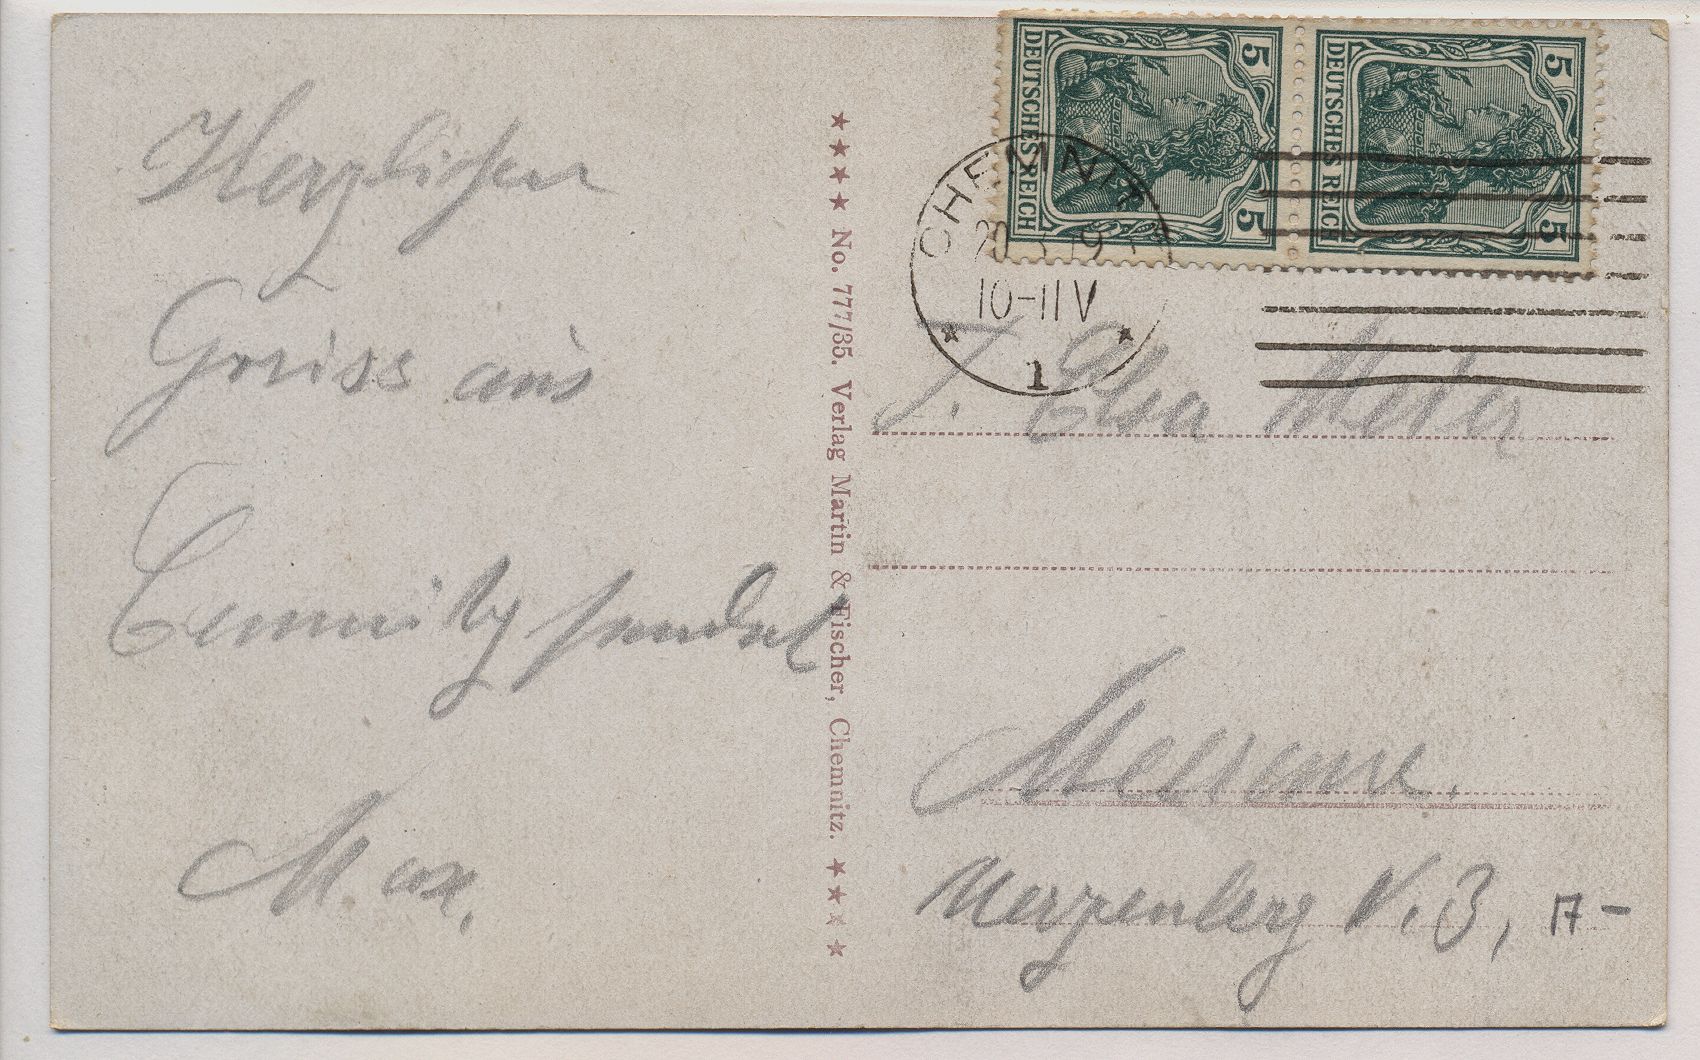 Herzlichen
Gruss aus
Cemnitz sendet
Max.
★★★★ No. 777/35. Verlag Martin & Fischer, Chemnitz. ★★★★
DEUTSCHES REICH
5 5
DEUTSCHES REICH
5 5
CHEMNITZ
20. 19
10-11 V
★ 1 ★
F. Elsa
Meerane.
Merzenberg N. 3,